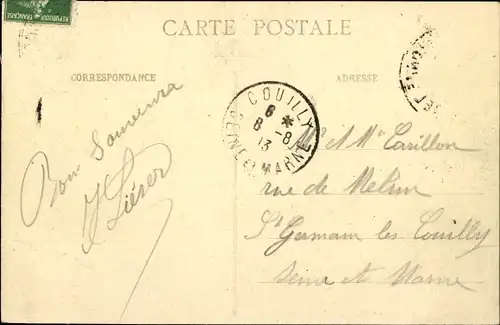 REPUBLIQUE FRANÇAISE
CARTE POSTALE
CORRESPONDANCE
ADRESSE
COUILLY
SEINE-ET-MARNE
6 *
8 -8
13
Bon Souvenir
Mr & Mme Carillon
rue de Melun
St Germain les Couilly
Seine et Marne